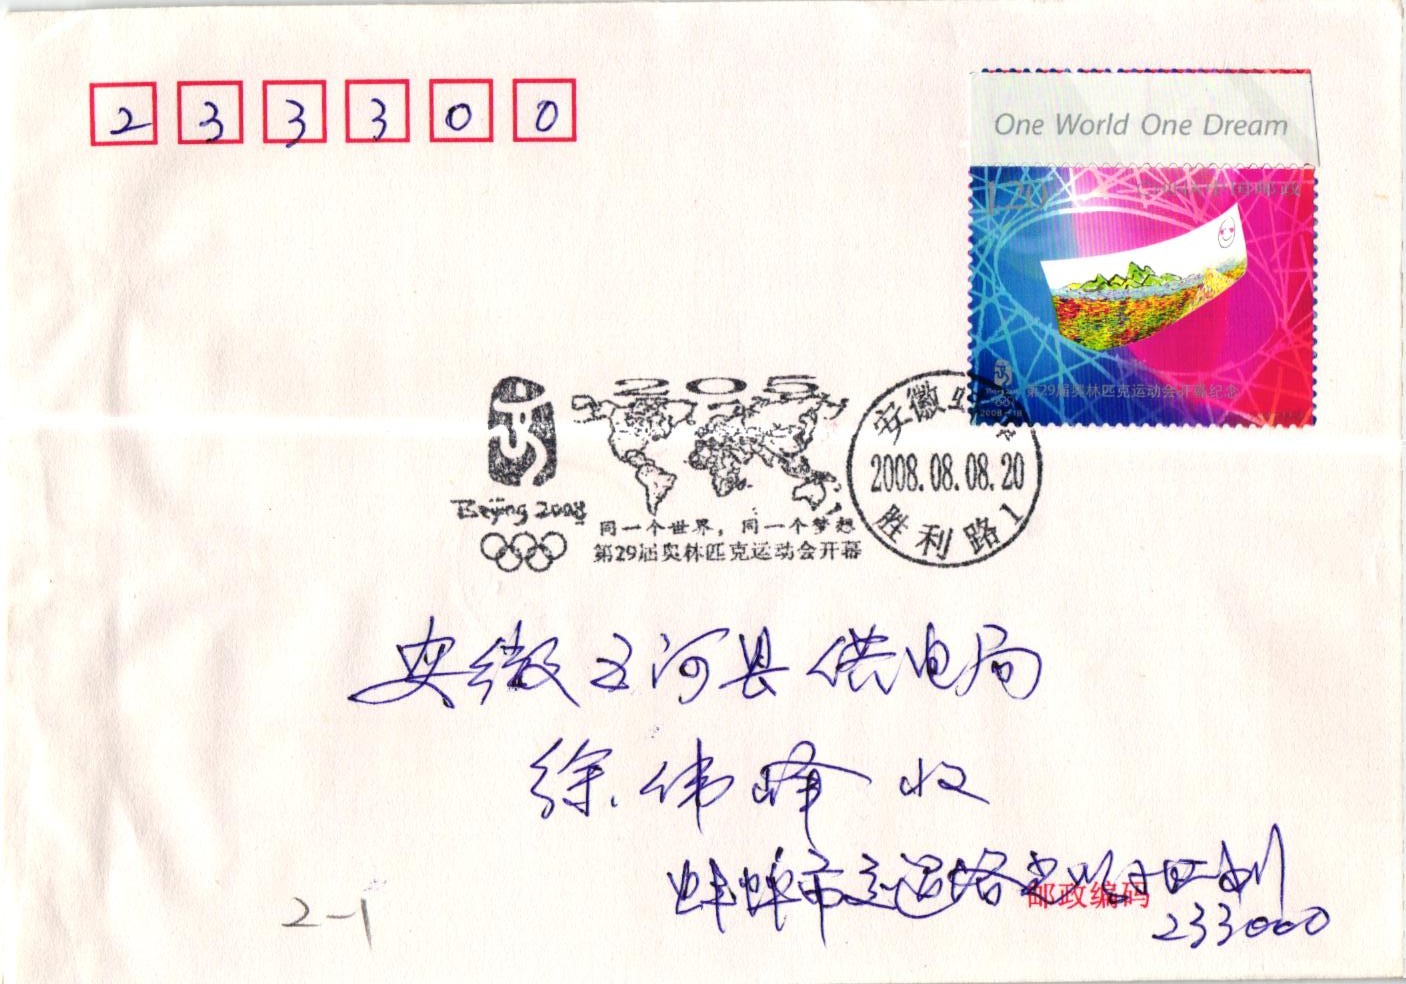 2 3 3 3 0 0
One World One Dream
1.20
中国邮政
第29届奥林匹克运动会开幕纪念
2008-18
205
Beijing 2008
同一个世界，同一个梦想
第29届奥林匹克运动会开幕
安徽
2008.08.08.20
胜利路1
安徽五河县供电局
徐伟峰 收
蚌埠市
邮政编码
233000
2-1